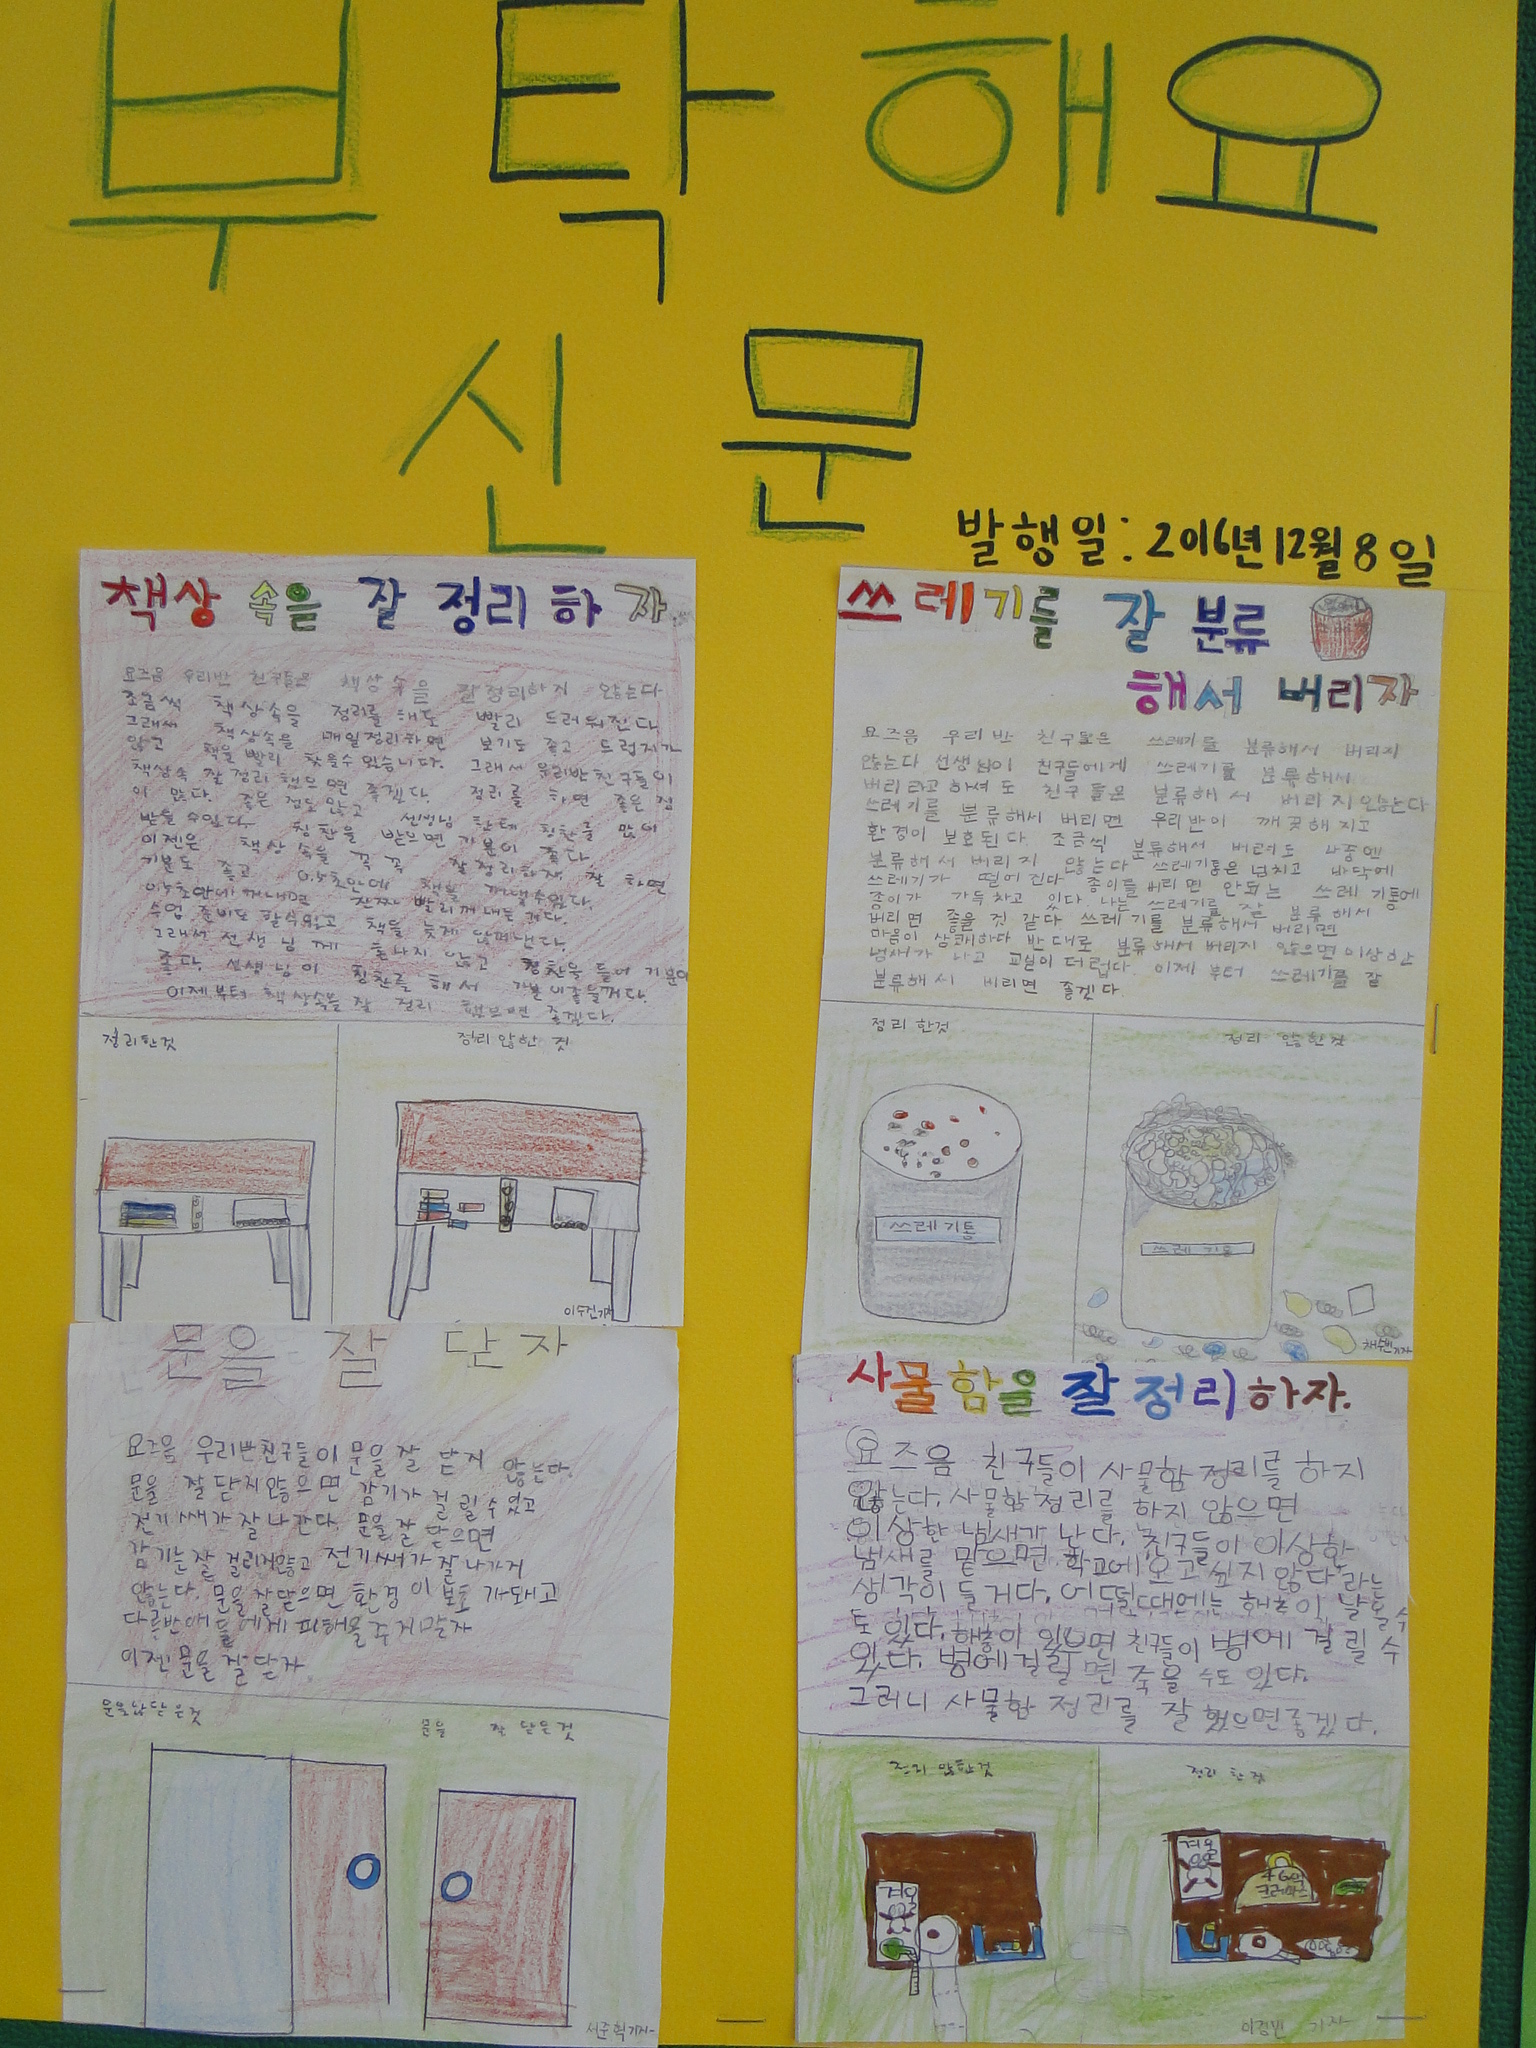 부탁해요
신문
발행일: 2016년 12월 8일
책상 속을 잘 정리하자
요즈음 우리반 친구들은 책상속을 잘정리하지 않는다
조금씩 책상속을 정리를 해도 빨리 드러워진다
그래서 책상속을 매일정리하면 보기도 좋고 드럽지가
않고 책을 빨리 찾을수있습니다. 그래서 우리반친구들이
책상속 잘정리 했으면 좋겠다. 정리를 하면 좋은 점
이 많다. 좋은 점도 않고 선생님 한테 칭찬를 많이
받을 수있다. 칭찬을 받으면 기분이 좋다.
이젠은 책상 속을 꼭 꼭 잘정리하자. 잘 하면
기분도 좋고 0.5초안에 책을 꺼낼수있다.
0.5초안에 꺼내면 진짜 빨리꺼내는 거다.
수업 준비도 할수있고 책들 늦게 않꺼낸다.
그래선 선생님께 혼나지 않고 칭찬을 들어 기분이
좋다. 선생님이 칭찬를 해서 기분이좋을꺼다.
이제부터 책상속을 잘 정리 했으면 좋겠다.
정리한것
정리 않한 것
이수진기자
쓰레기를 잘 분류
해서 버리자
요즈음 우리반 친구들은 쓰레기를 분류해서 버리지
않는다 선생님이 친구들에게 쓰레기를 분류해서
버리라고하셔도 친구들은 분류해서 버리지않는다
쓰레기를 분류해서 버리면 우리반이 깨끗해지고
환경이 보호된다 조금씩 분류해서 버려도 나중엔
분류해서 버리지 않는다 쓰레기통은 넘치고 바닥에
쓰레기가 떨어진다 종이를버리면 안되는 쓰레기통에
종이가 가득차고 있다 나는 쓰레기를 잘 분류해서
버리면 좋을 것 같다 쓰레기를 분류해서 버리면
마음이 상쾌하다 반대로 분류해서 버리지 않으면 이상한
냄새가 나고 교실이 더럽다. 이제 부터 쓰레기를 잘
분류해서 버리면 좋겠다.
정리 한것
정리 않한것
쓰레기통
쓰레기통
채수빈기자
문을 잘 닫자
요즈음 우리반친구들이 문을 잘 닫지 않는다.
문을 잘닫지않으면 감기가 걸릴수있고
전기세가 잘 나간다. 문을 잘 닫으면
감기는잘 걸리지않고 전기세가 잘 나가지
않는다. 문을 잘닫으면 환경이 보호가돼고
다른반애들에게 피해를 주게말자
이젠 문을 잘 닫자.
문을않닫은것
문을 잘 닫은것
서준혁기자
사물함을 잘 정리하자.
요즈음 친구들이 사물함정리를 하지
않는다. 사물함정리를 하지 않으면
이상한 냄새가 난다. 친구들이 이상한
냄새를 맡으면 학교에오고싶지 않다라는
생각이 들거다. 어떨때에는 해충이 날올수
도 있다. 해충이 있으면 친구들이 병에 걸릴 수
있다. 병에걸릴면 죽을 수도 있다.
그러니 사물함 정리를 잘 했으면좋겠다.
정리 않한것
정리 한것
겨울
겨울
이정빈 기자